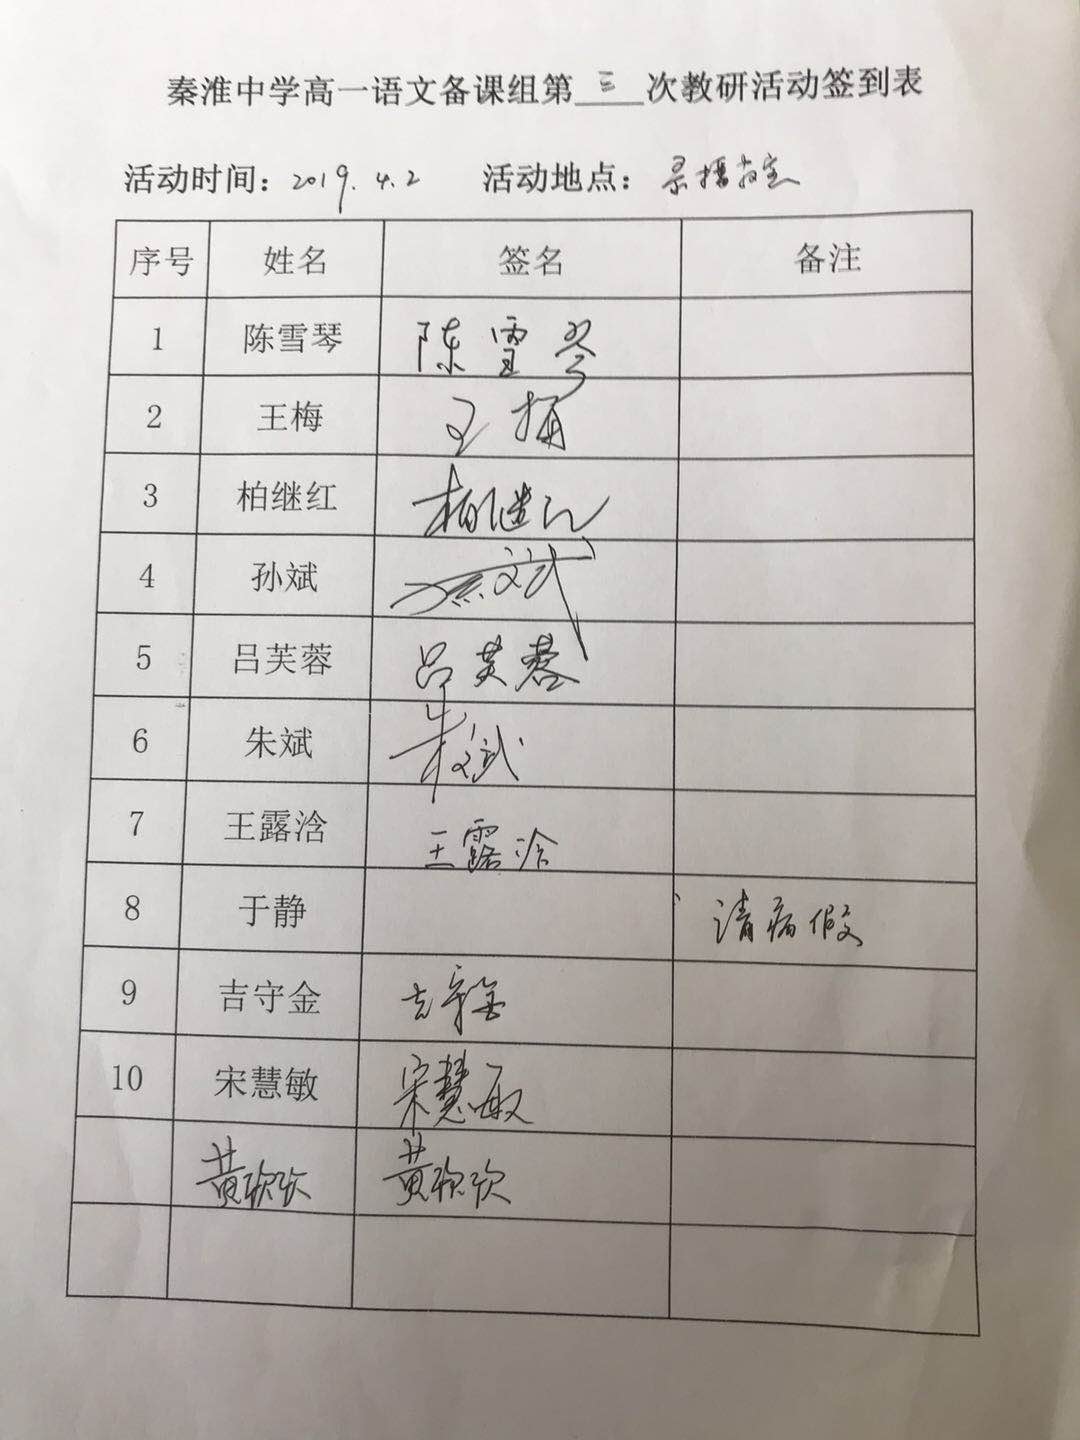 秦淮中学高一语文备课组第三次教研活动签到表
活动时间：2019.4.2 活动地点：录播教室
序号 姓名 签名 备注
1 陈雪琴 陈雪琴
2 王梅 王梅
3 柏继红 柏继红
4 孙斌 孙斌
5 吕芙蓉 吕芙蓉
6 朱斌 朱斌
7 王露浛 王露浛
8 于静 请病假
9 吉守金 吉守金
10 宋慧敏 宋慧敏
黄欣欣 黄欣欣